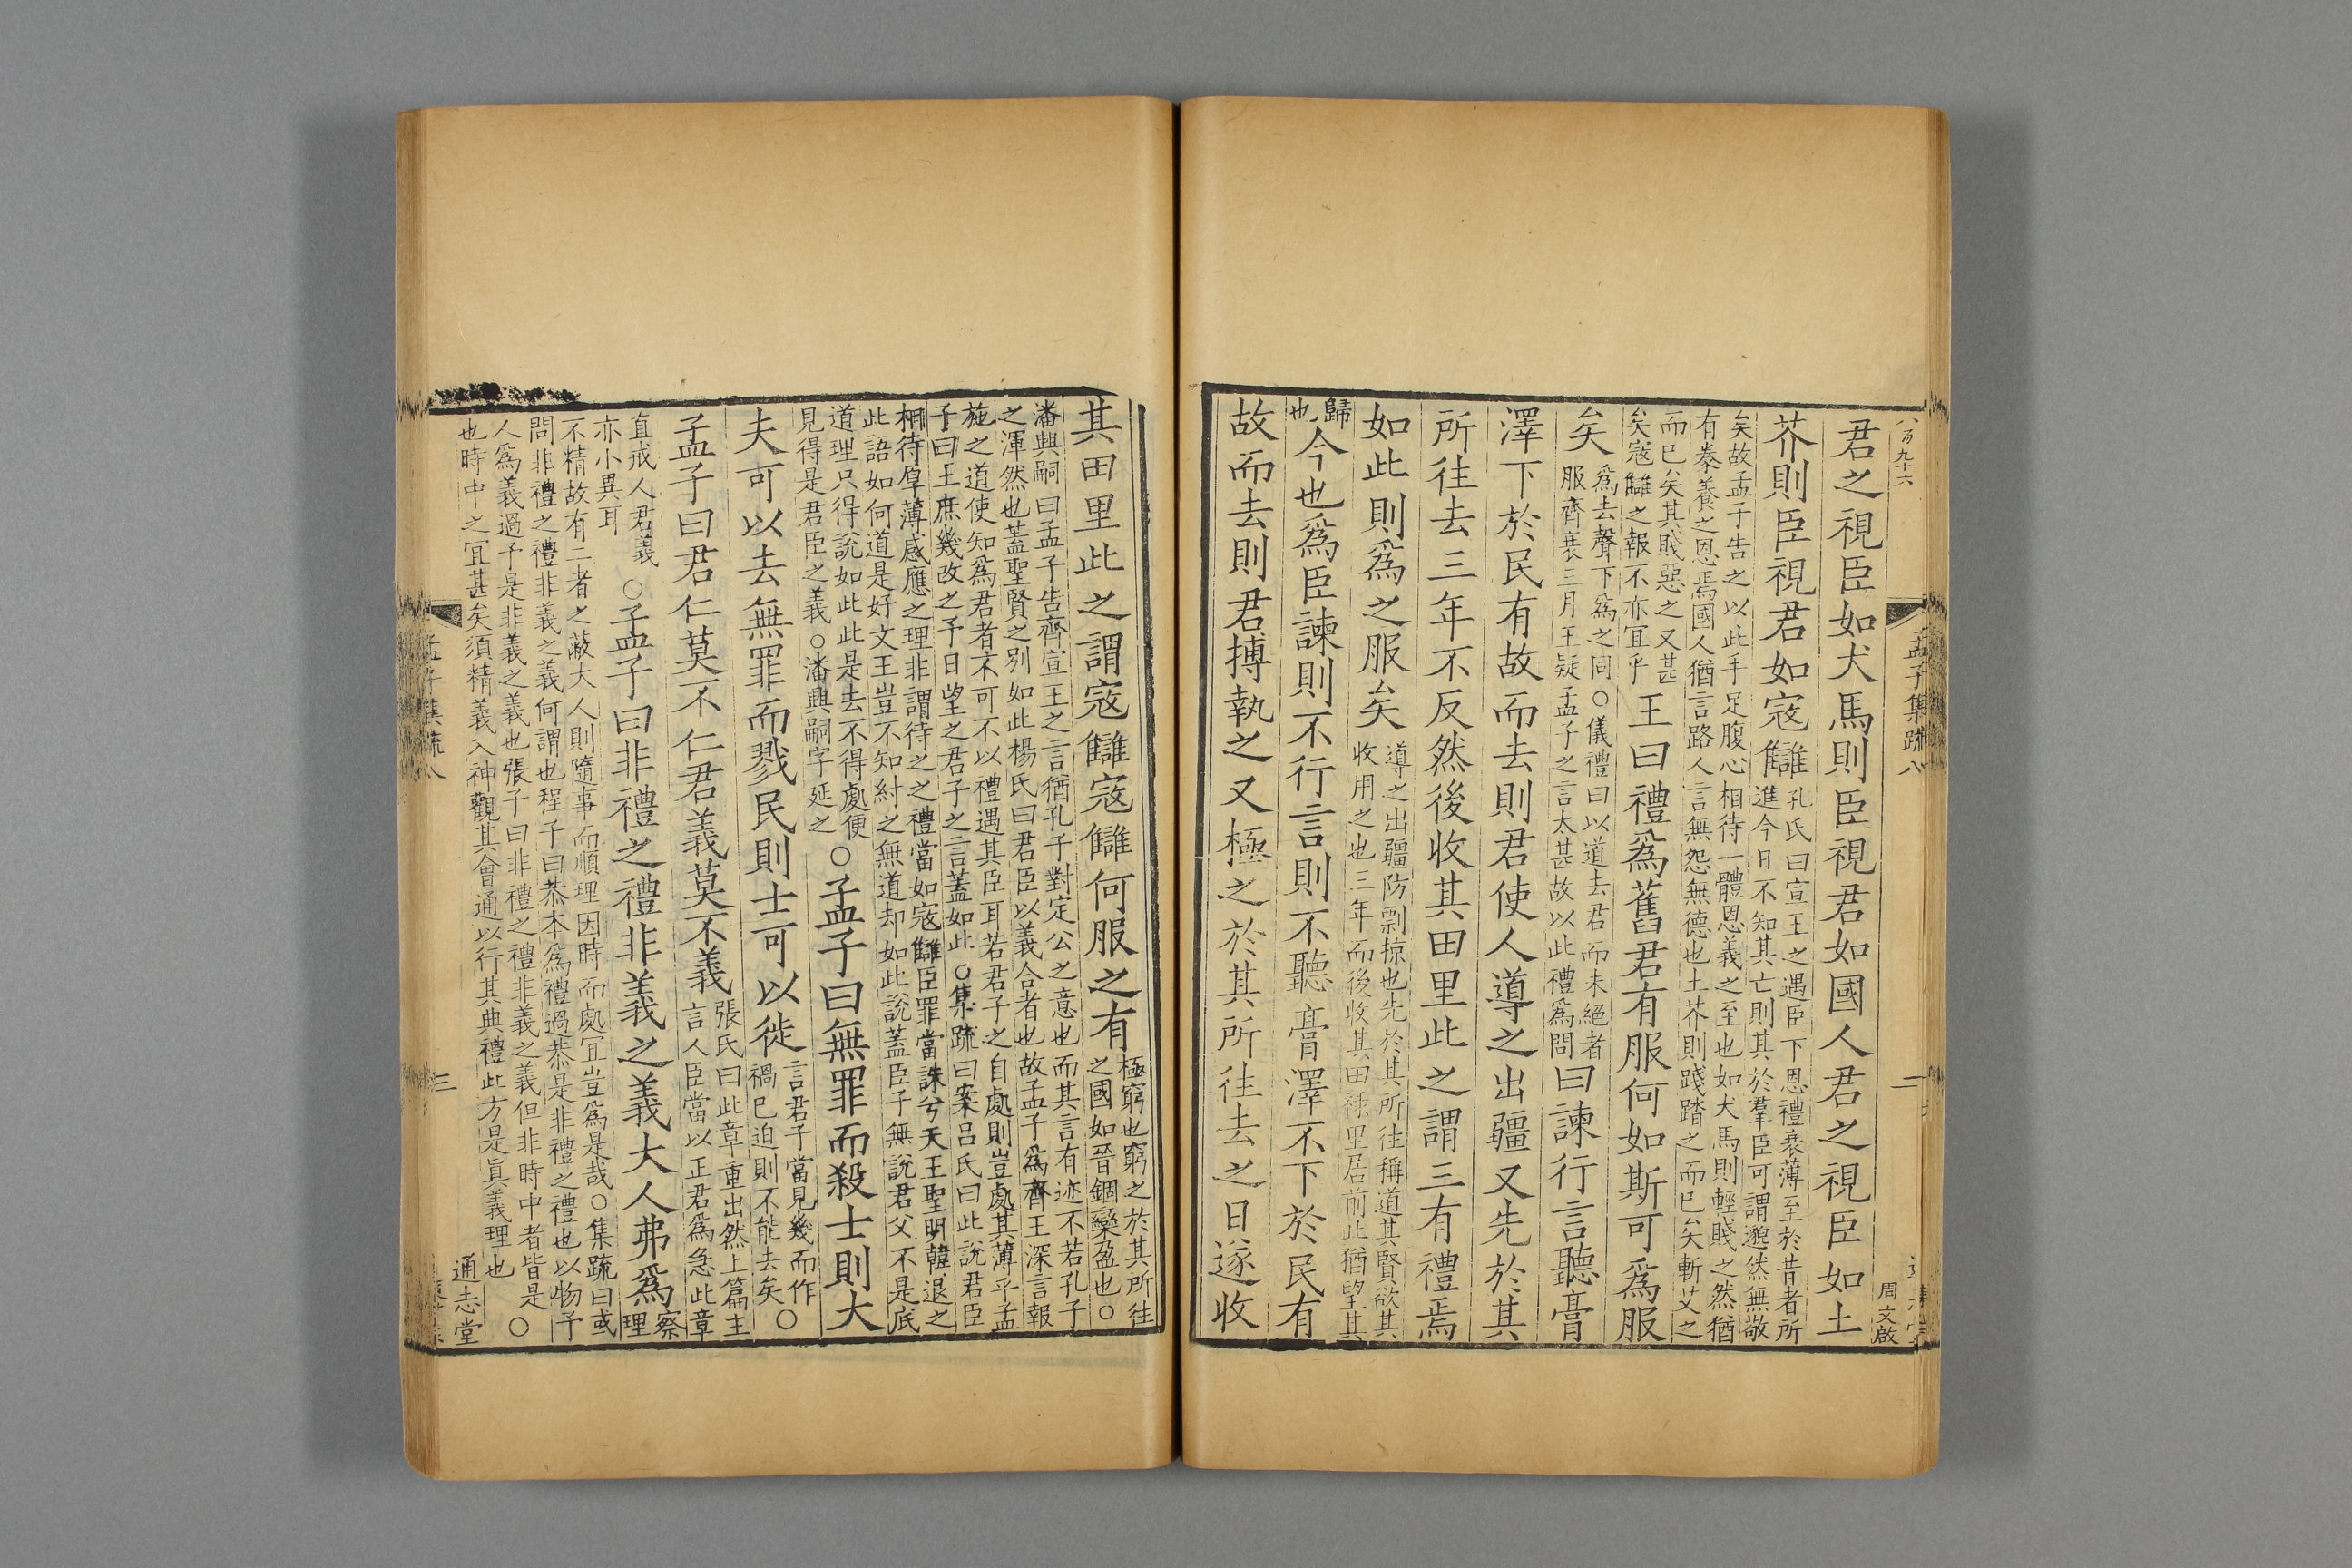 八百九十六
孟子集疏八
二
周文啟
君之視臣如犬馬則臣視君如國人君之視臣如土
芥則臣視君如寇讎孔氏曰宣王之遇臣下恩禮衰薄至於昔者所
進今日不知其亡則其於羣臣可謂邈然無敬
矣故孟子告之以此手足腹心相待一體恩義之至也如犬馬則輕賤之然猶
有豢養之恩焉國人猶言路人言無怨無德也土芥則踐踏之而已矣斬艾之
而已矣其賤惡之又甚
矣寇讎之報不亦宜乎王曰禮爲舊君有服何如斯可爲服
矣爲去聲下爲之同○儀禮曰以道去君而未絕者
服齊衰三月王疑孟子之言太甚故以此禮爲問曰諫行言聽膏
澤下於民有故而去則君使人導之出疆又先於其
所往去三年不反然後收其田里此之謂三有禮焉
如此則爲之服矣導之出疆防剽掠也先於其所往稱道其賢欲其
收用之也三年而後收其田祿里居前此猶望其
歸
也今也爲臣諫則不行言則不聽膏澤不下於民有
故而去則君搏執之又極之於其所往去之日遂收
其田里此之謂寇讎寇讎何服之有極窮也窮之於其所往
之國如晉錮欒盈也○
潘興嗣曰孟子告齊宣王之言猶孔子對定公之意也而其言有迹不若孔子
之渾然也蓋聖賢之別如此楊氏曰君臣以義合者也故孟子爲齊王深言報
施之道使知爲君者不可不以禮遇其臣耳若君子之自處則豈處其薄乎孟
子曰王庶幾改之予日望之君子之言蓋如此○集疏曰案呂氏曰此說君臣
相待厚薄感應之理非謂待之之禮當如寇讎臣罪當誅兮天王聖明韓退之
此語如何道是好文王豈不知紂之無道却如此說蓋臣子無說君父不是底
道理只得說如此此是去不得處便
見得是君臣之義○潘興嗣字延之○孟子曰無罪而殺士則大
夫可以去無罪而戮民則士可以徙言君子當見幾而作
禍已迫則不能去矣○
孟子曰君仁莫不仁君義莫不義張氏曰此章重出然上篇主
言人臣當以正君爲急此章
直戒人君義
亦小異耳○孟子曰非禮之禮非義之義大人弗爲察
理
不精故有二者之蔽大人則隨事而順理因時而處宜豈爲是哉○集疏曰或
問非禮之禮非義之義何謂也程子曰恭本爲禮過恭是非禮之禮也以物予
人爲義過予是非義之義也張子曰非禮之禮非義之義但非時中者皆是○
也時中之宜甚矣須精義入神觀其會通以行其典禮此方是眞義理也
三
通志堂